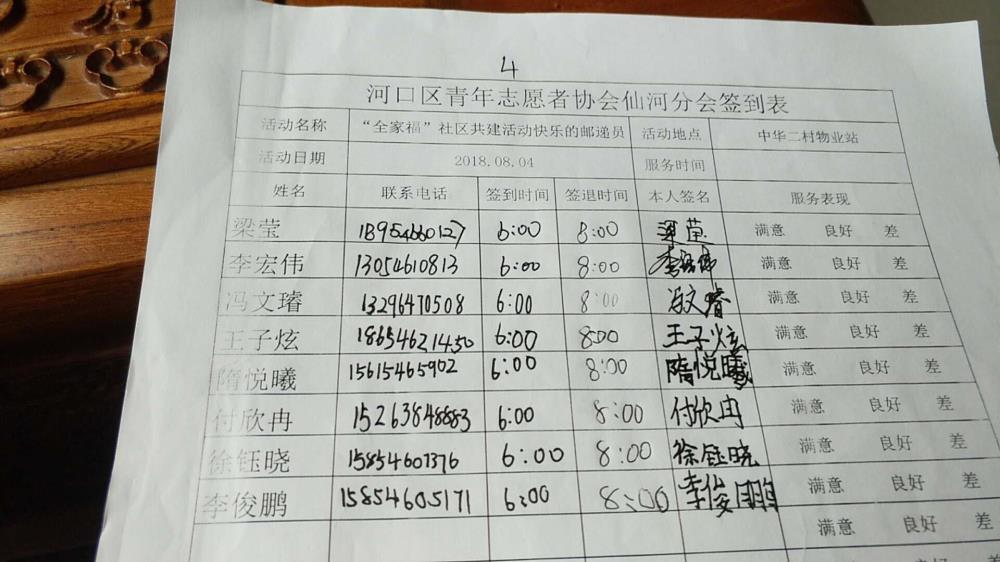 4
河口区青年志愿者协会仙河分会签到表
活动名称 “全家福”社区共建活动快乐的邮递员 活动地点 中华二村物业站
活动日期 2018.08.04 服务时间
姓名 联系电话 签到时间 签退时间 本人签名 服务表现
梁莹 18954660127 6:00 8:00 梁莹 满意 良好 差
李宏伟 13054610813 6:00 8:00 李宏伟 满意 良好 差
冯文璿 13296470508 6:00 8:00 冯文睿 满意 良好 差
王子炫 18654621450 6:00 8:00 王子炫 满意 良好 差
隋悦曦 15615465902 6:00 8:00 隋悦曦 满意 良好 差
付欣冉 15263848883 6:00 8:00 付欣冉 满意 良好 差
徐钰晓 15854607376 6:00 8:00 徐钰晓 满意 良好 差
李俊鹏 15854605171 6:00 8:00 李俊鹏 满意 良好 差
满意 良好 差
良好 差